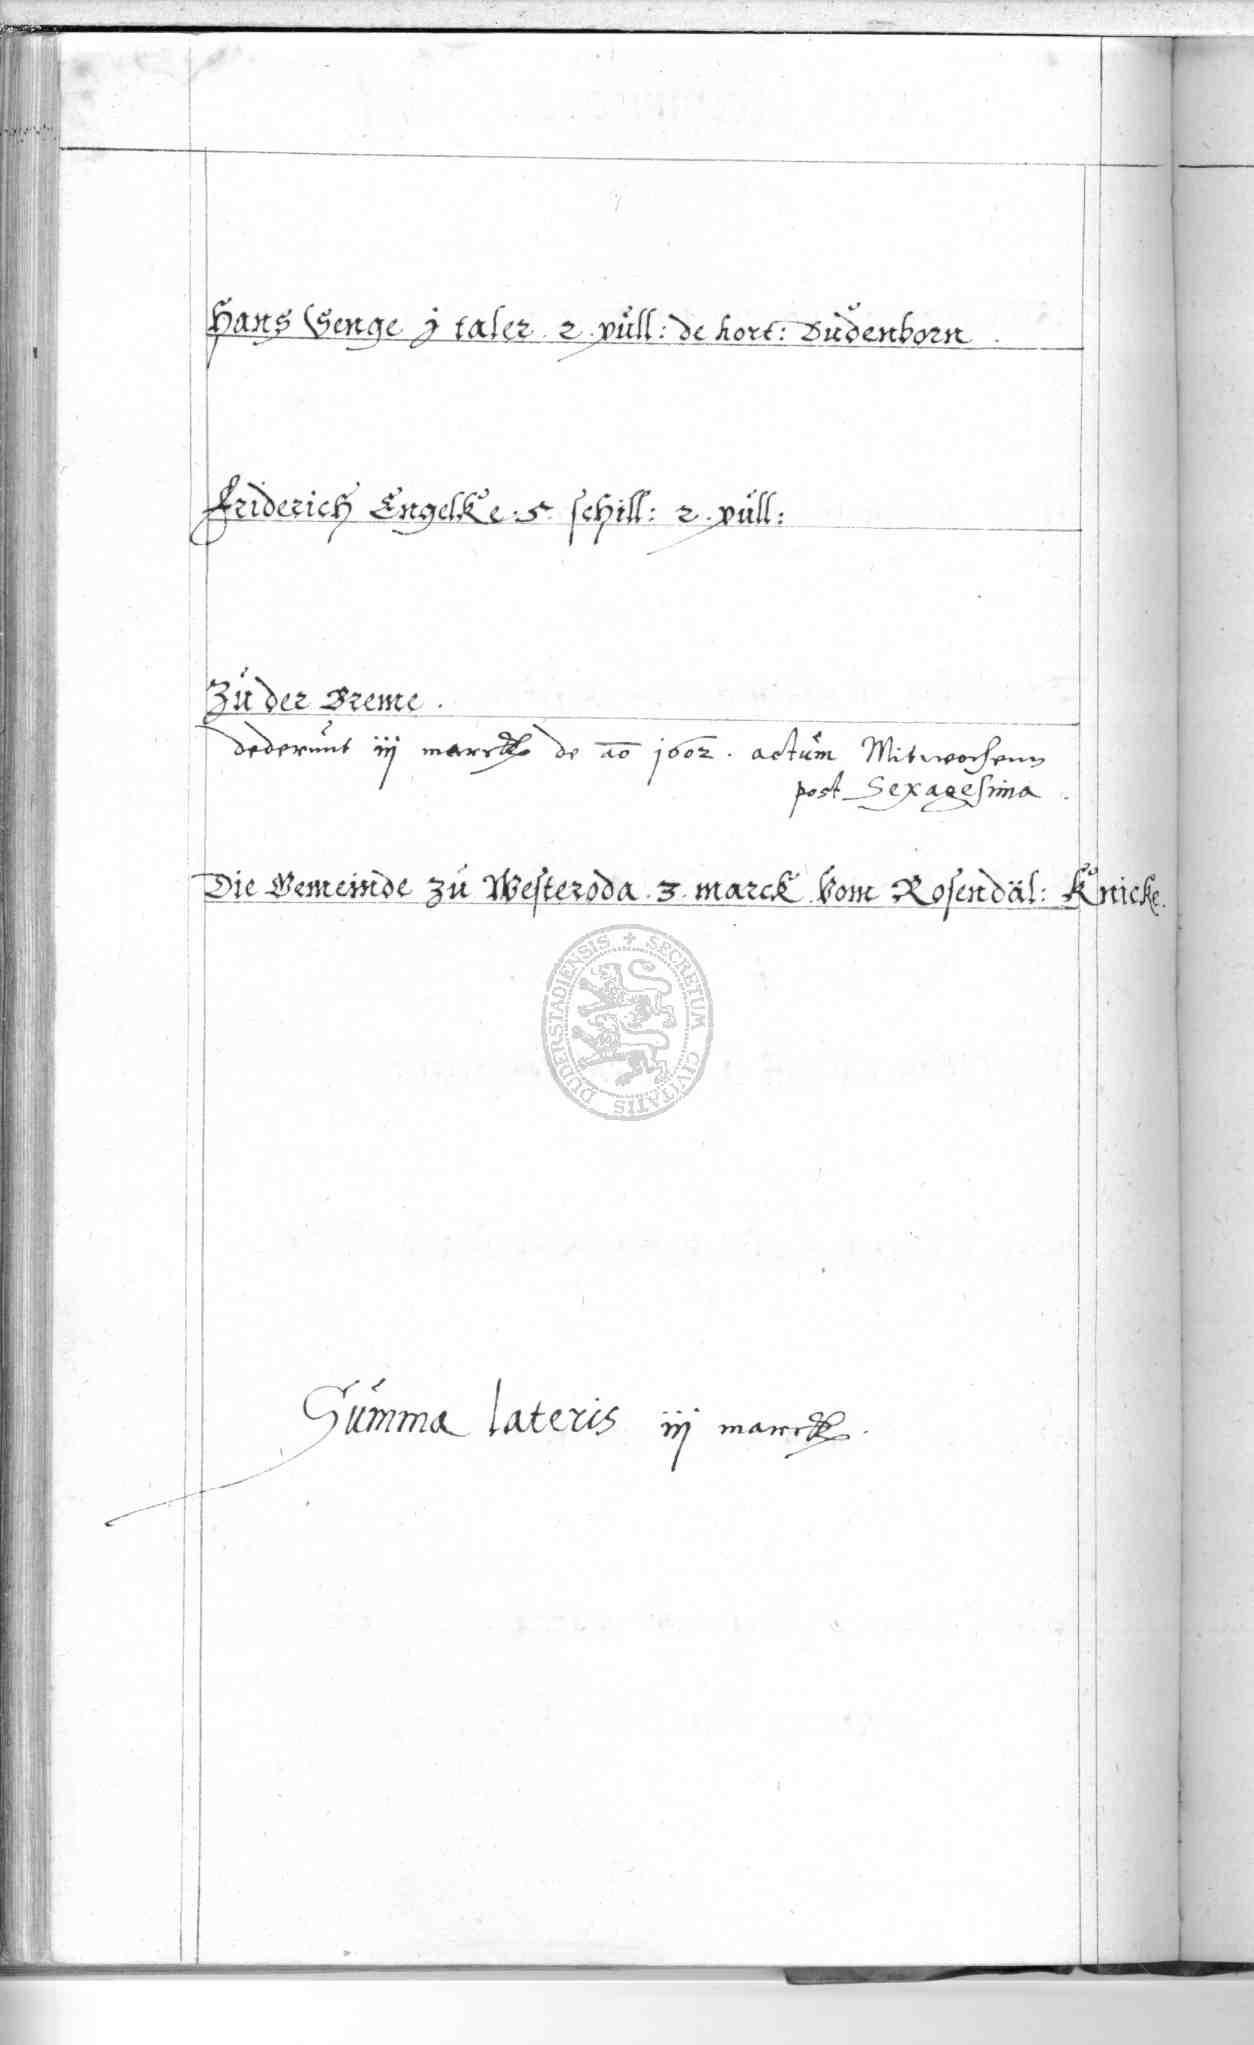 Hans Senge j taler . 2 . püll: de hort: Dudenborn .
Friderich Engelke . 5 . schill: 2 . püll:
Zu der Breme .
dederunt iij marck de ao 1602 . actum Mitwochenn
post Sexagesima .
Die Gemeinde zu Westeroda . 3 . marck vom Rosendäl: Knicke .
SECRETUM CIVITATIS DUDERSTADIENSIS
Summa lateris iij marck .